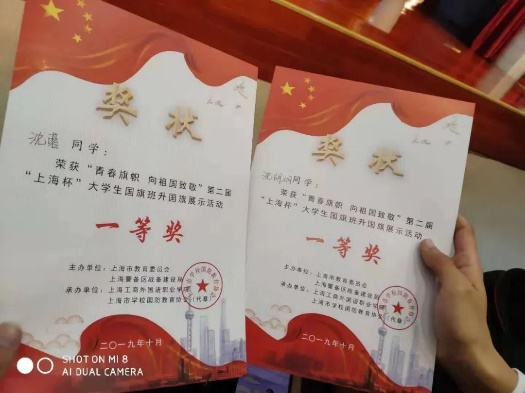 奖状
同学：
荣获“青春旗帜 向祖国致敬”第二届
“上海杯”大学生国旗班升国旗展示活动
一等奖
主办单位：上海市教育委员会
上海警备区战备建设局
承办单位：上海工商外国语职业学院
上海市学校国防教育协会（代章）
二〇一九年十月
SHOT ON MI 8
AI DUAL CAMERA
奖状
同学：
荣获“青春旗帜 向祖国致敬”第二届
“上海杯”大学生国旗班升国旗展示活动
一等奖
主办单位：上海市教育委员会
上海警备区战备建设局
承办单位：上海工商外国语职业学院
上海市学校国防教育协会（代章）
二〇一九年十月